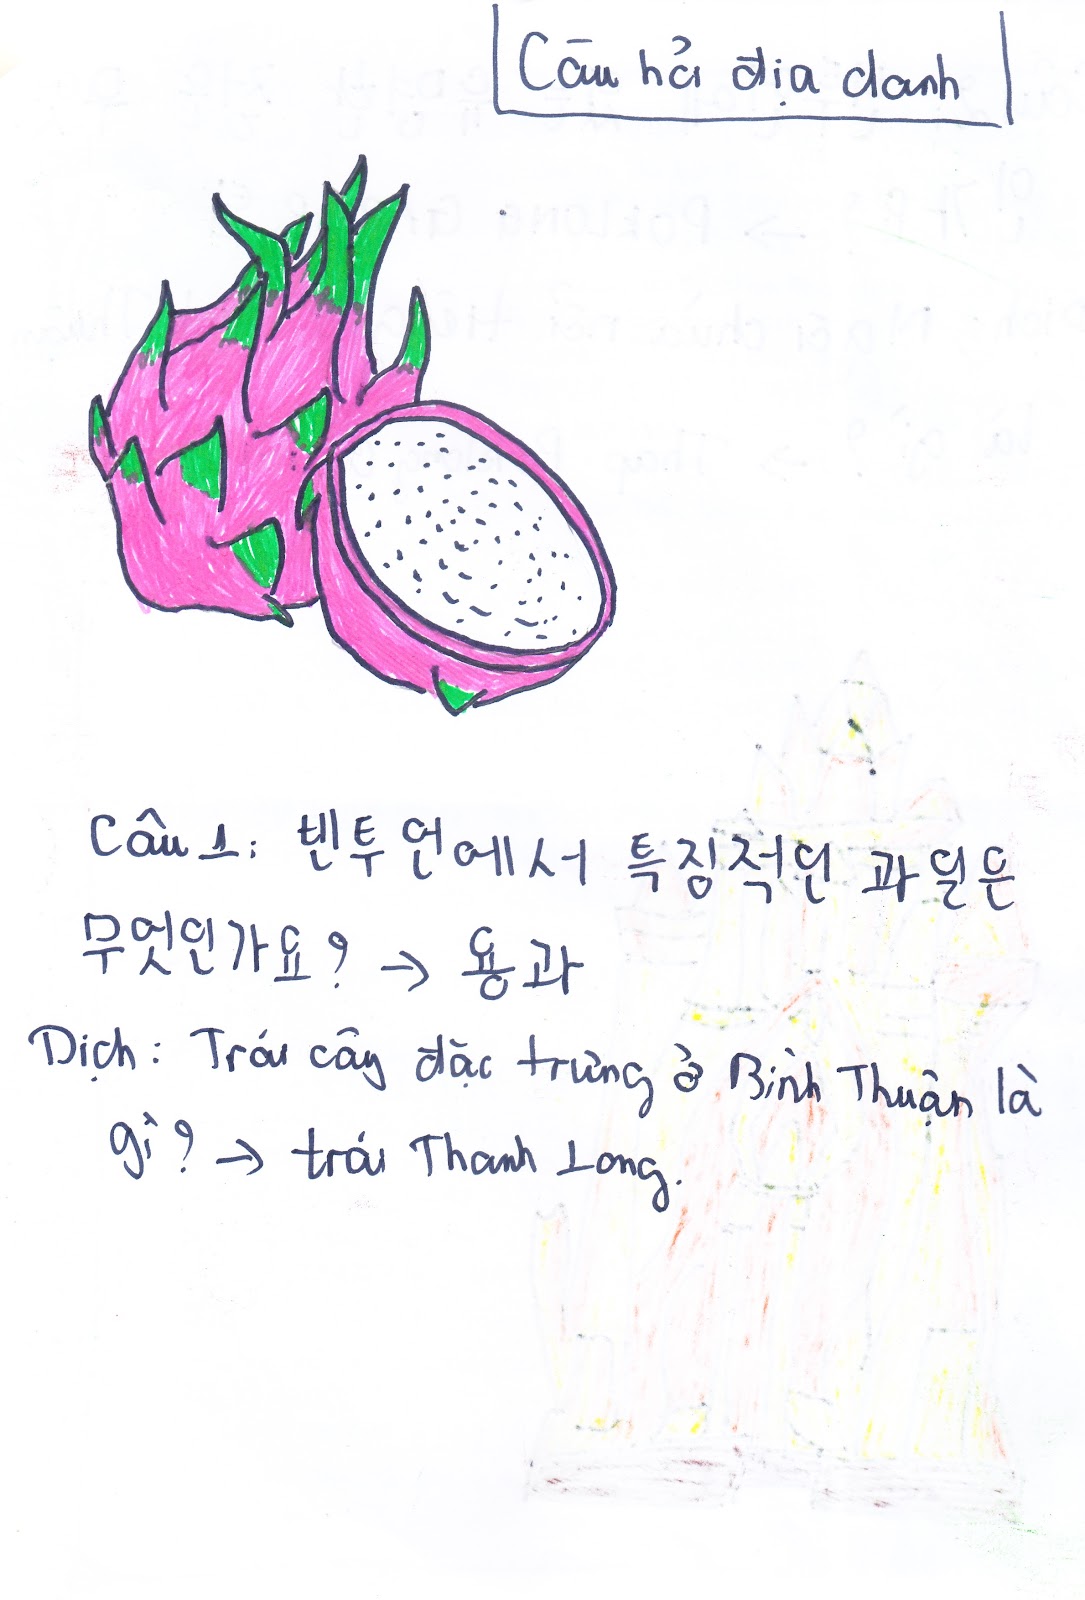 Câu hỏi địa danh
Câu 1: 빈투언에서 특징적인 과일은
무엇인가요? → 용과
Dịch: Trái cây đặc trưng ở Bình Thuận là
gì? → trái Thanh Long.